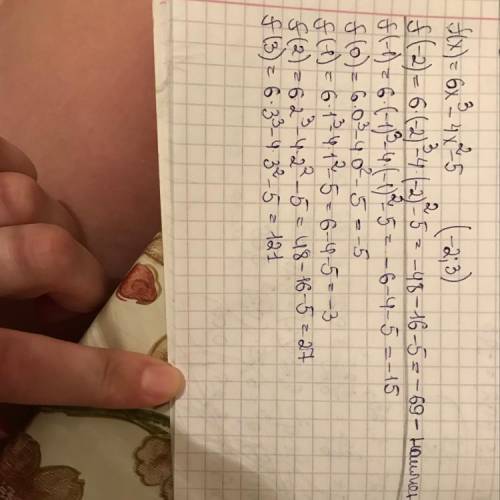 f(x) = 6x³ - 4x² - 5 (-2; 3)
f(-2) = 6·(-2)³ - 4·(-2)² - 5 = -48 - 16 - 5 = -69 -
f(-1) = 6·(-1)³ - 4(-1)² - 5 = -6 - 4 - 5 = -15
f(0) = 6·0³ - 4·0² - 5 = -5
f(1) = 6·1³ - 4·1² - 5 = 6 - 4 - 5 = -3
f(2) = 6·2³ - 4·2² - 5 = 48 - 16 - 5 = 27
f(3) = 6·3³ - 4·3² - 5 = 121